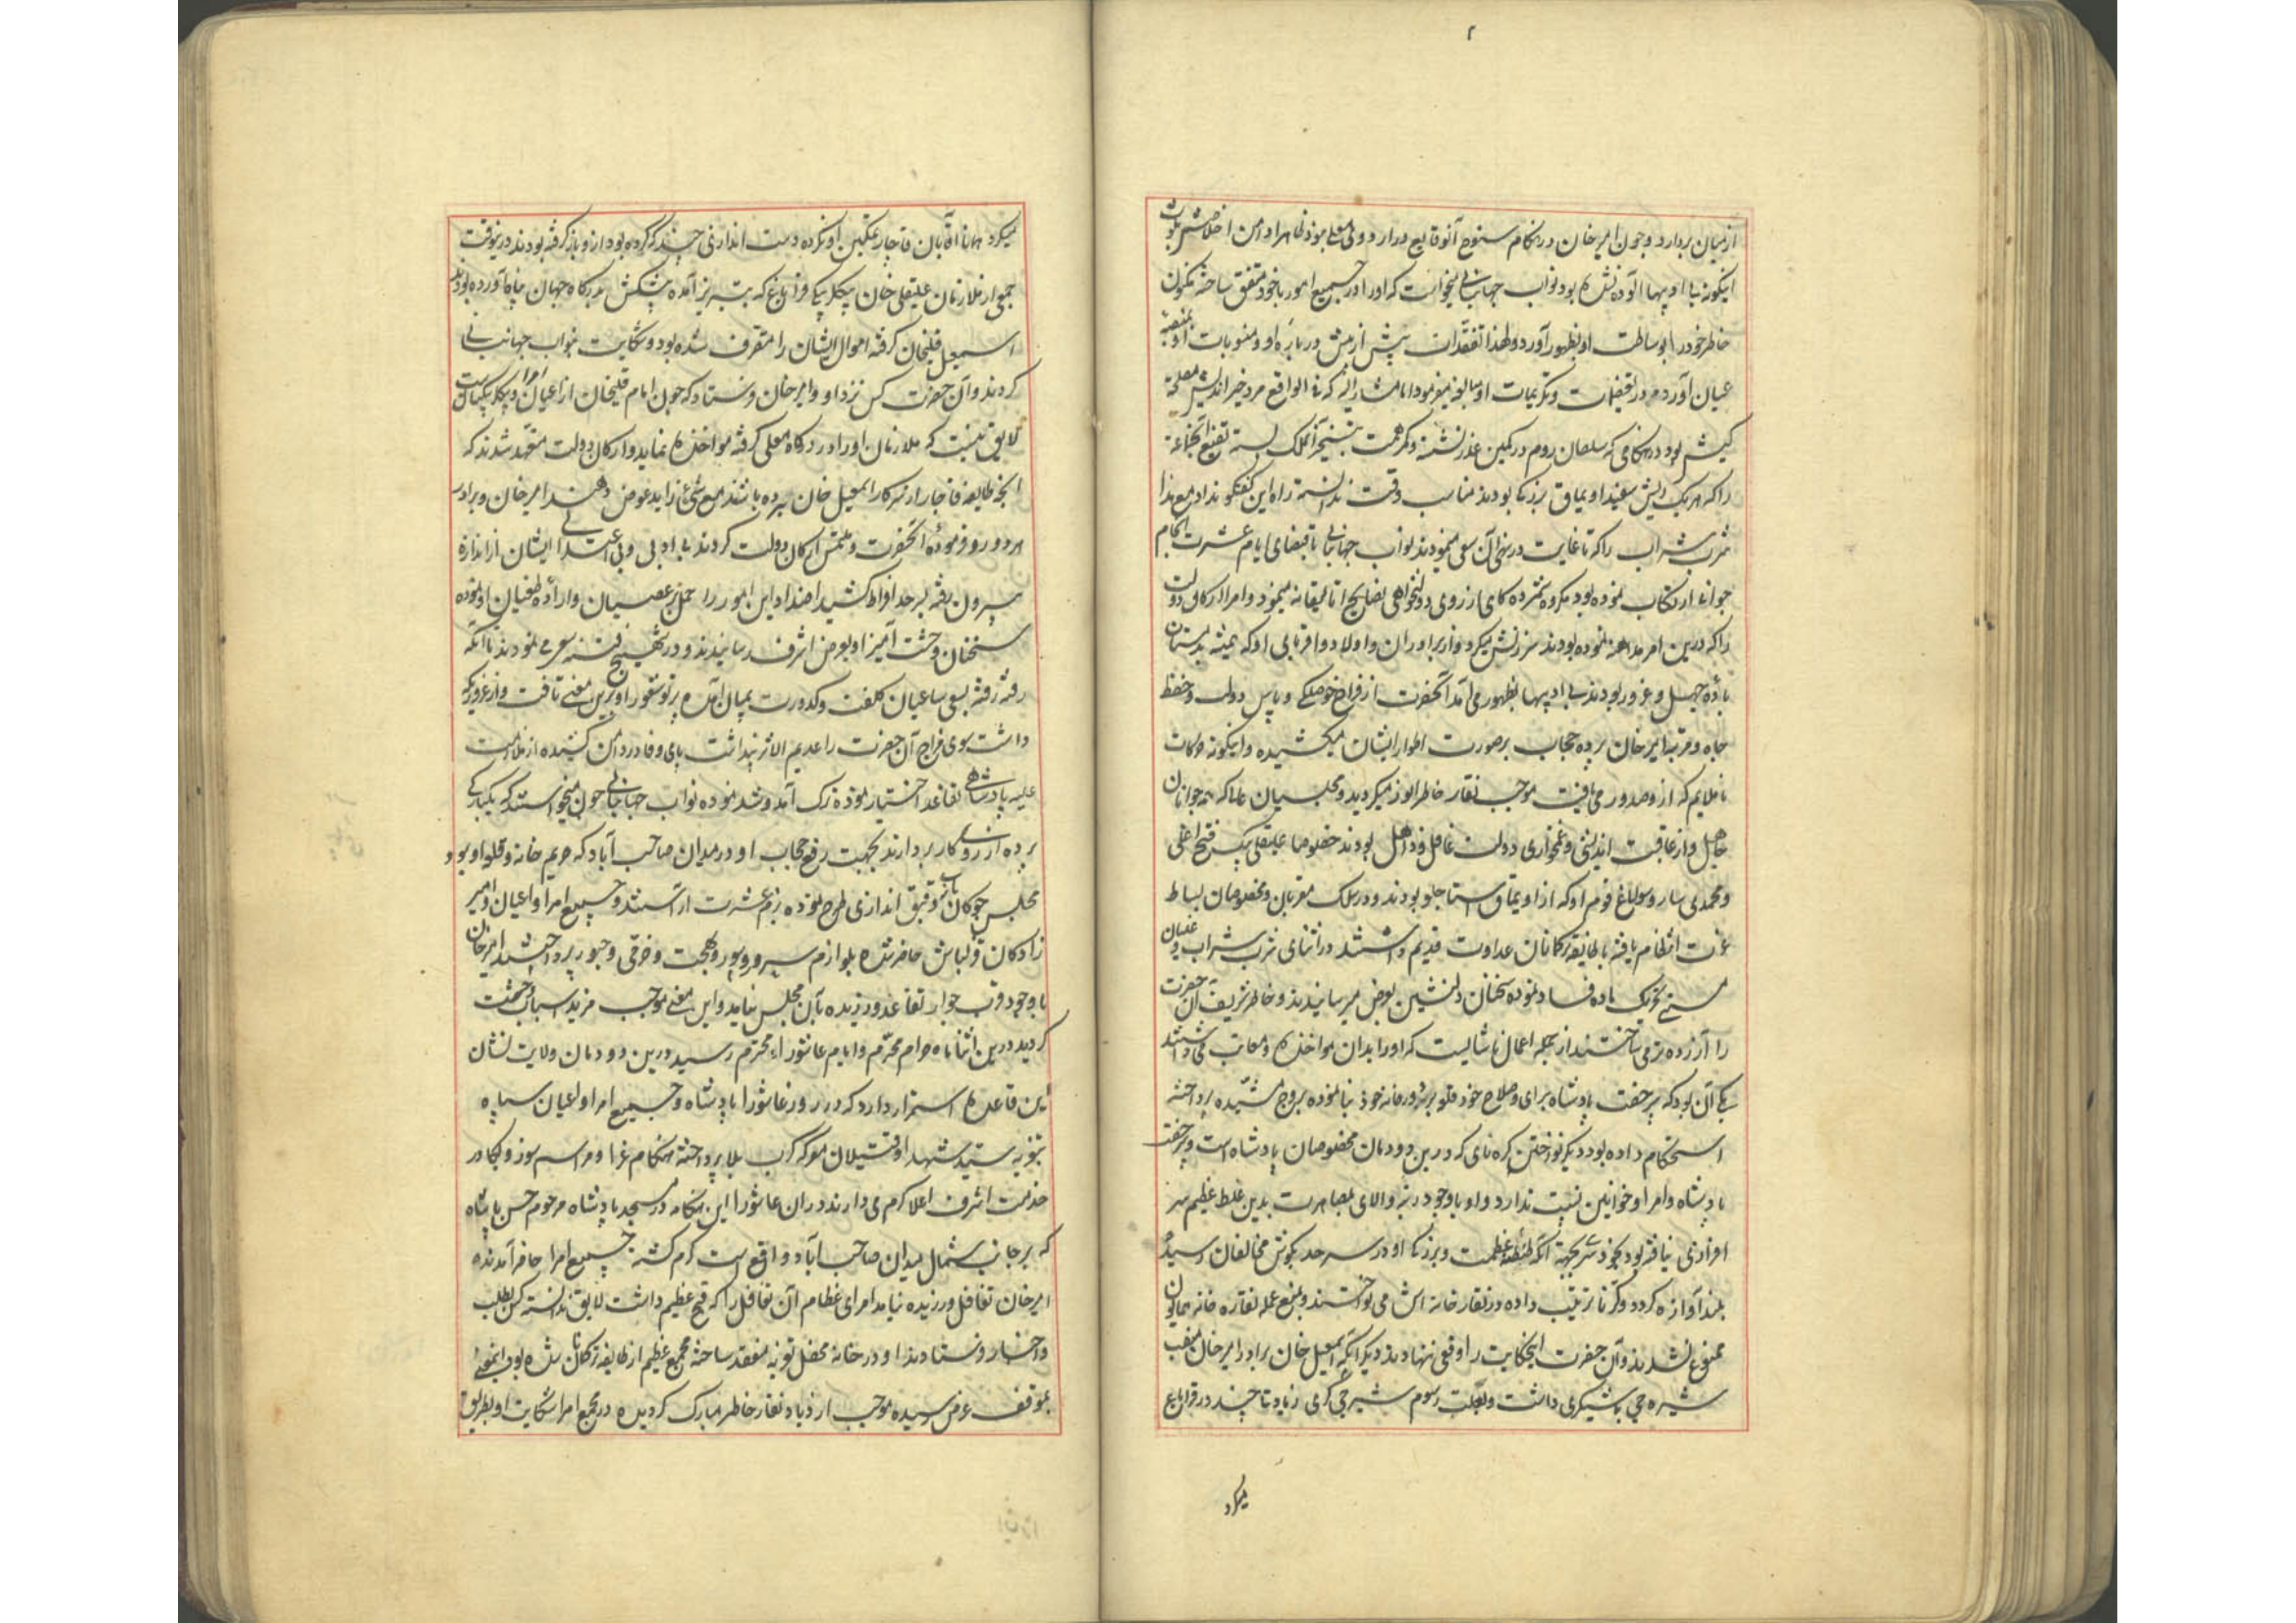 ۲
از میان بردارد و چون امیرخان در هنگام سنوح آن وقایع در اردوی معلی بود و ظاهرا دامن اخلاصش بلوث
اینگونه بی ادبیها آلوده نشده بود نواب جهانبانی میخواست که او را در جمیع امور با خود متفق ساخته مکنون
خاطر خود را بوساطت او بظهور آورد و لهذا تفقدات بیش از پیش درباره او و منسوبات او بمنصه
عیان آورده در تعظیمات و تکریمات او مبالغه میفرمود اما مشارالیه که فی الواقع مرد خیراندیش مصلحت
کیش بود در هنگامی که سلطان روم در کمین غدر نشسته و کمر همت بتسخیر آن ملک بسته تضییع آنجماعة
را که هر یک ریش سفید اویماق بزرگ بودند مناسب وقت ندانسته راه این گفتگو نداد مع هذا
شرب شراب را که تا غایت در نهی آن سعی مینمودند نواب جهانبانی باقتضای ایام عشرت انجام
جوانی ارتکاب نموده بود مکروه شمرده گاهی از روی دولتخواهی نصایح اتالیقانه مینمود و امرا و ارکان دولت
را که درین امر مداهنه نموده بودند سرزنش میکرد و از برادران و اولاد و اقربای او که همیشه بدمستان
باده جهل و غرور بودند بی ادبیها بظهور می آمد آنحضرت از فراخ حوصلگی و پاس دولت و حفظ
جاه و مرتبه امیرخان پرده حجاب بر صورت اطوار ایشان میکشیده و اینگونه حرکات
ناملایم که ازو صدور می یافت موجب نقار خاطر انور میگردید و مجلسیان غماکه همه جوانان
جاهل و از عاقبت اندیشی و غمخواری دولت غافل و ذاهل بودند خصوصا علیقلی بیک فتح اغلی
و محمدی ساروسولاغ قوم او که از اویماق استاجلو بودند و در سلک مقربان و مخصوصان بساط
عزت انتظام یافته با طایفه ترکمانان عداوت قدیم داشتند در اثنای شرب شراب و غلیان
مستی تحریک ماده فساد نموده سخنان دلنشین بعرض میرسانیدند و خاطر شریف آن حضرت
را آزرده تر می ساختند از جمله اعمال ناشایست که او را بدان مواخذه و معاتب می داشتند
یکی آن بود که بی رخصت پادشاه برای و صلاح خود قلعه بر در خانه خود بنا نموده ببروج مشیده پرداخته
استحکام داده بود دیگر نواختن کره نای که درین دودمان مخصوصان پادشاه است و بی رخصت
پادشاه و امرا و خوانین نسبت ندارد و او با وجود رتبه والای مصاهرت بدین غلط عظیم سر
افرازی نیافته بود بخودسر بجهة آنکه طنطنه عظمت و بزرگی او در سرحد بگوش مخالفان رسیده
بلند آوازه گردد کرنا ترتیب داده در نقارخانه اش می نواختند و بمنع عمله نقاره خانه همایون
ممنوع نشدند و آن حضرت اینحکایت را وقعی ننهادند دیگر آنکه اسمعیل خان برادر امیرخان منصب
شیره چی باشیگری داشت و بعلت رسوم شیره چی گری زیادتی چند در قراباغ
میکرد
میکرد همانا آقایان قاجار تمکین او نکرده دست اندازی چند که کرده بود ازو باز گرفته بودند درینوقت
جمعی از ملازمان علیقلی خان بیگلربیگی قراباغ که بتبریز آمده پیشکش بدرگاه جهان پناه آورده بودند
اسمعیل قلیخان گرفته اموال ایشان را متصرف شده بود و شکایت بنواب جهانبانی
کردند و آن حضرت کس نزد او و امیرخان فرستاد که چون امام قلیخان از اعیان امرا و بیگلربیگیانست
لایق نیست که ملازمان او را در درگاه معلی گرفته مواخذه نماید و ارکان دولت متعهد شدند که
آنچه طایفه قاجار از سرکار اسمعیل خان برده باشند مع شیء زاید عوض دهند امیرخان و برادر
هر دو رد فرموده آنحضرت و ملتمس ارکان دولت کردند بی ادبی و بی اعتدالی ایشان از اندازه
بیرون رفته بسرحد افراط کشید اضداد این امور را حمل بر عصیان و اراده طغیان او نموده
سخنان وحشت آمیز او بعرض اشرف رسانیدند و در تهییج فتنه سعی می نمودند تا آنکه
رفته رفته بسعی ساعیان کلفت و کدورت بمیان آمده پرتو شعور او برین معنی تافت و از غروریکه
داشت سوی مزاج آن حضرت را عدیم الاثر پنداشت پای وفا در دامن کشیده از ملازمت
علیه پادشاهی تقاعد اختیار نموده ترک آمد و شد نموده نواب جهانبانی چون میخواستند که یکبارگی
پرده از روی کار بردارند بجهت رفع حجاب او در میدان صاحب آباد که حریم خانه و قلعه او بود
مجلس چوگان بازی و قبق اندازی طرح نموده بزم عشرت آراستند و جمیع امرا و اعیان و امیر
زادگان قزلباش حاضر شده بلوازم سرور و بهجت و خرمی و حبور پرداختند امیرخان
با وجود قرب جوار تقاعد ورزیده بآن مجلس نیامد و این معنی موجب مزید اسباب وحشت
گردید درین اثنا ماه حرام محرم و ایام عاشوراء محترم رسید و درین دودمان ولایت نشان
این قاعده استمرار دارد که در روز عاشورا پادشاه و جمیع امرا و اعیان سپاه
بتعزیه سید شهدا و قتیلان معرکه کربلا پرداخته هنگام عزا و مراسم سوز و بکا در
خدمت اشرف اعلا گرم می دارند در آن عاشورا این هنگامه در مسجد پادشاه مرحوم حسن پادشاه
که بر جانب شمال میدان صاحب آباد واقع است گرم گشته جمیع امرا حاضر آمدند
امیرخان تغافل ورزیده نیامد امرای عظام آن تغافل را که قبح عظیم داشت لایق ندانسته کس بطلب
و احضار فرستادند او در خانه محفل تعزیه منعقد ساخته مجمع عظیم از طایفه ترکمان شده بود اینمعنی
بموقف عرض رسیده موجب ازدیاد نقار خاطر مبارک گردیده در مجمع امرا شکایت او بطریق